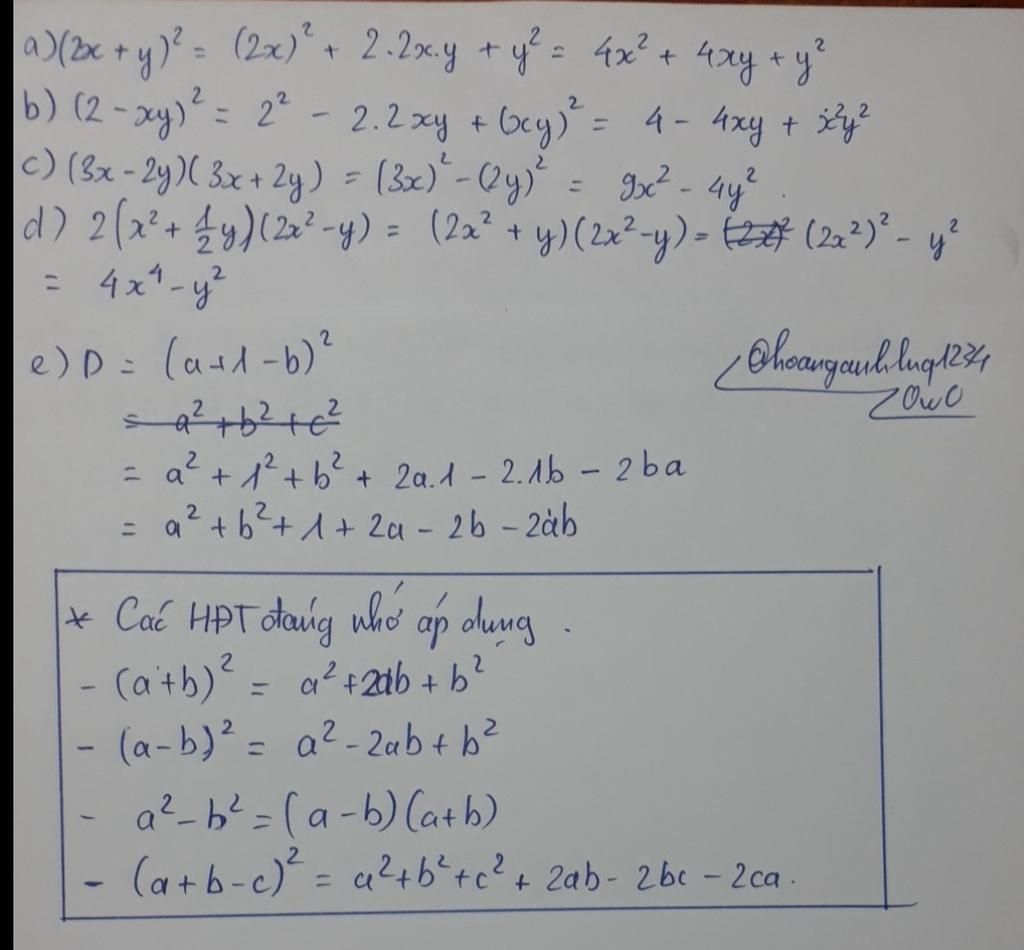 a) (2x + y)² = (2x)² + 2.2x.y + y² = 4x² + 4xy + y²
b) (2 - xy)² = 2² - 2.2xy + (xy)² = 4 - 4xy + x²y²
c) (3x - 2y)(3x + 2y) = (3x)² - (2y)² = 9x² - 4y².
d) 2(x² + 1/2 y)(2x² - y) = (2x² + y)(2x² - y) = (2x²)² - y²
= 4x⁴ - y²
e) D = (a + 1 - b)²
@hoanganhluq1234
OwO
= a² + b² + c²
= a² + 1² + b² + 2a.1 - 2.1b - 2ba
= a² + b² + 1 + 2a - 2b - 2ab
* Các HĐT đáng nhớ áp dụng.
- (a + b)² = a² + 2ab + b²
- (a - b)² = a² - 2ab + b²
- a² - b² = (a - b)(a + b)
- (a + b - c)² = a² + b² + c² + 2ab - 2bc - 2ca.